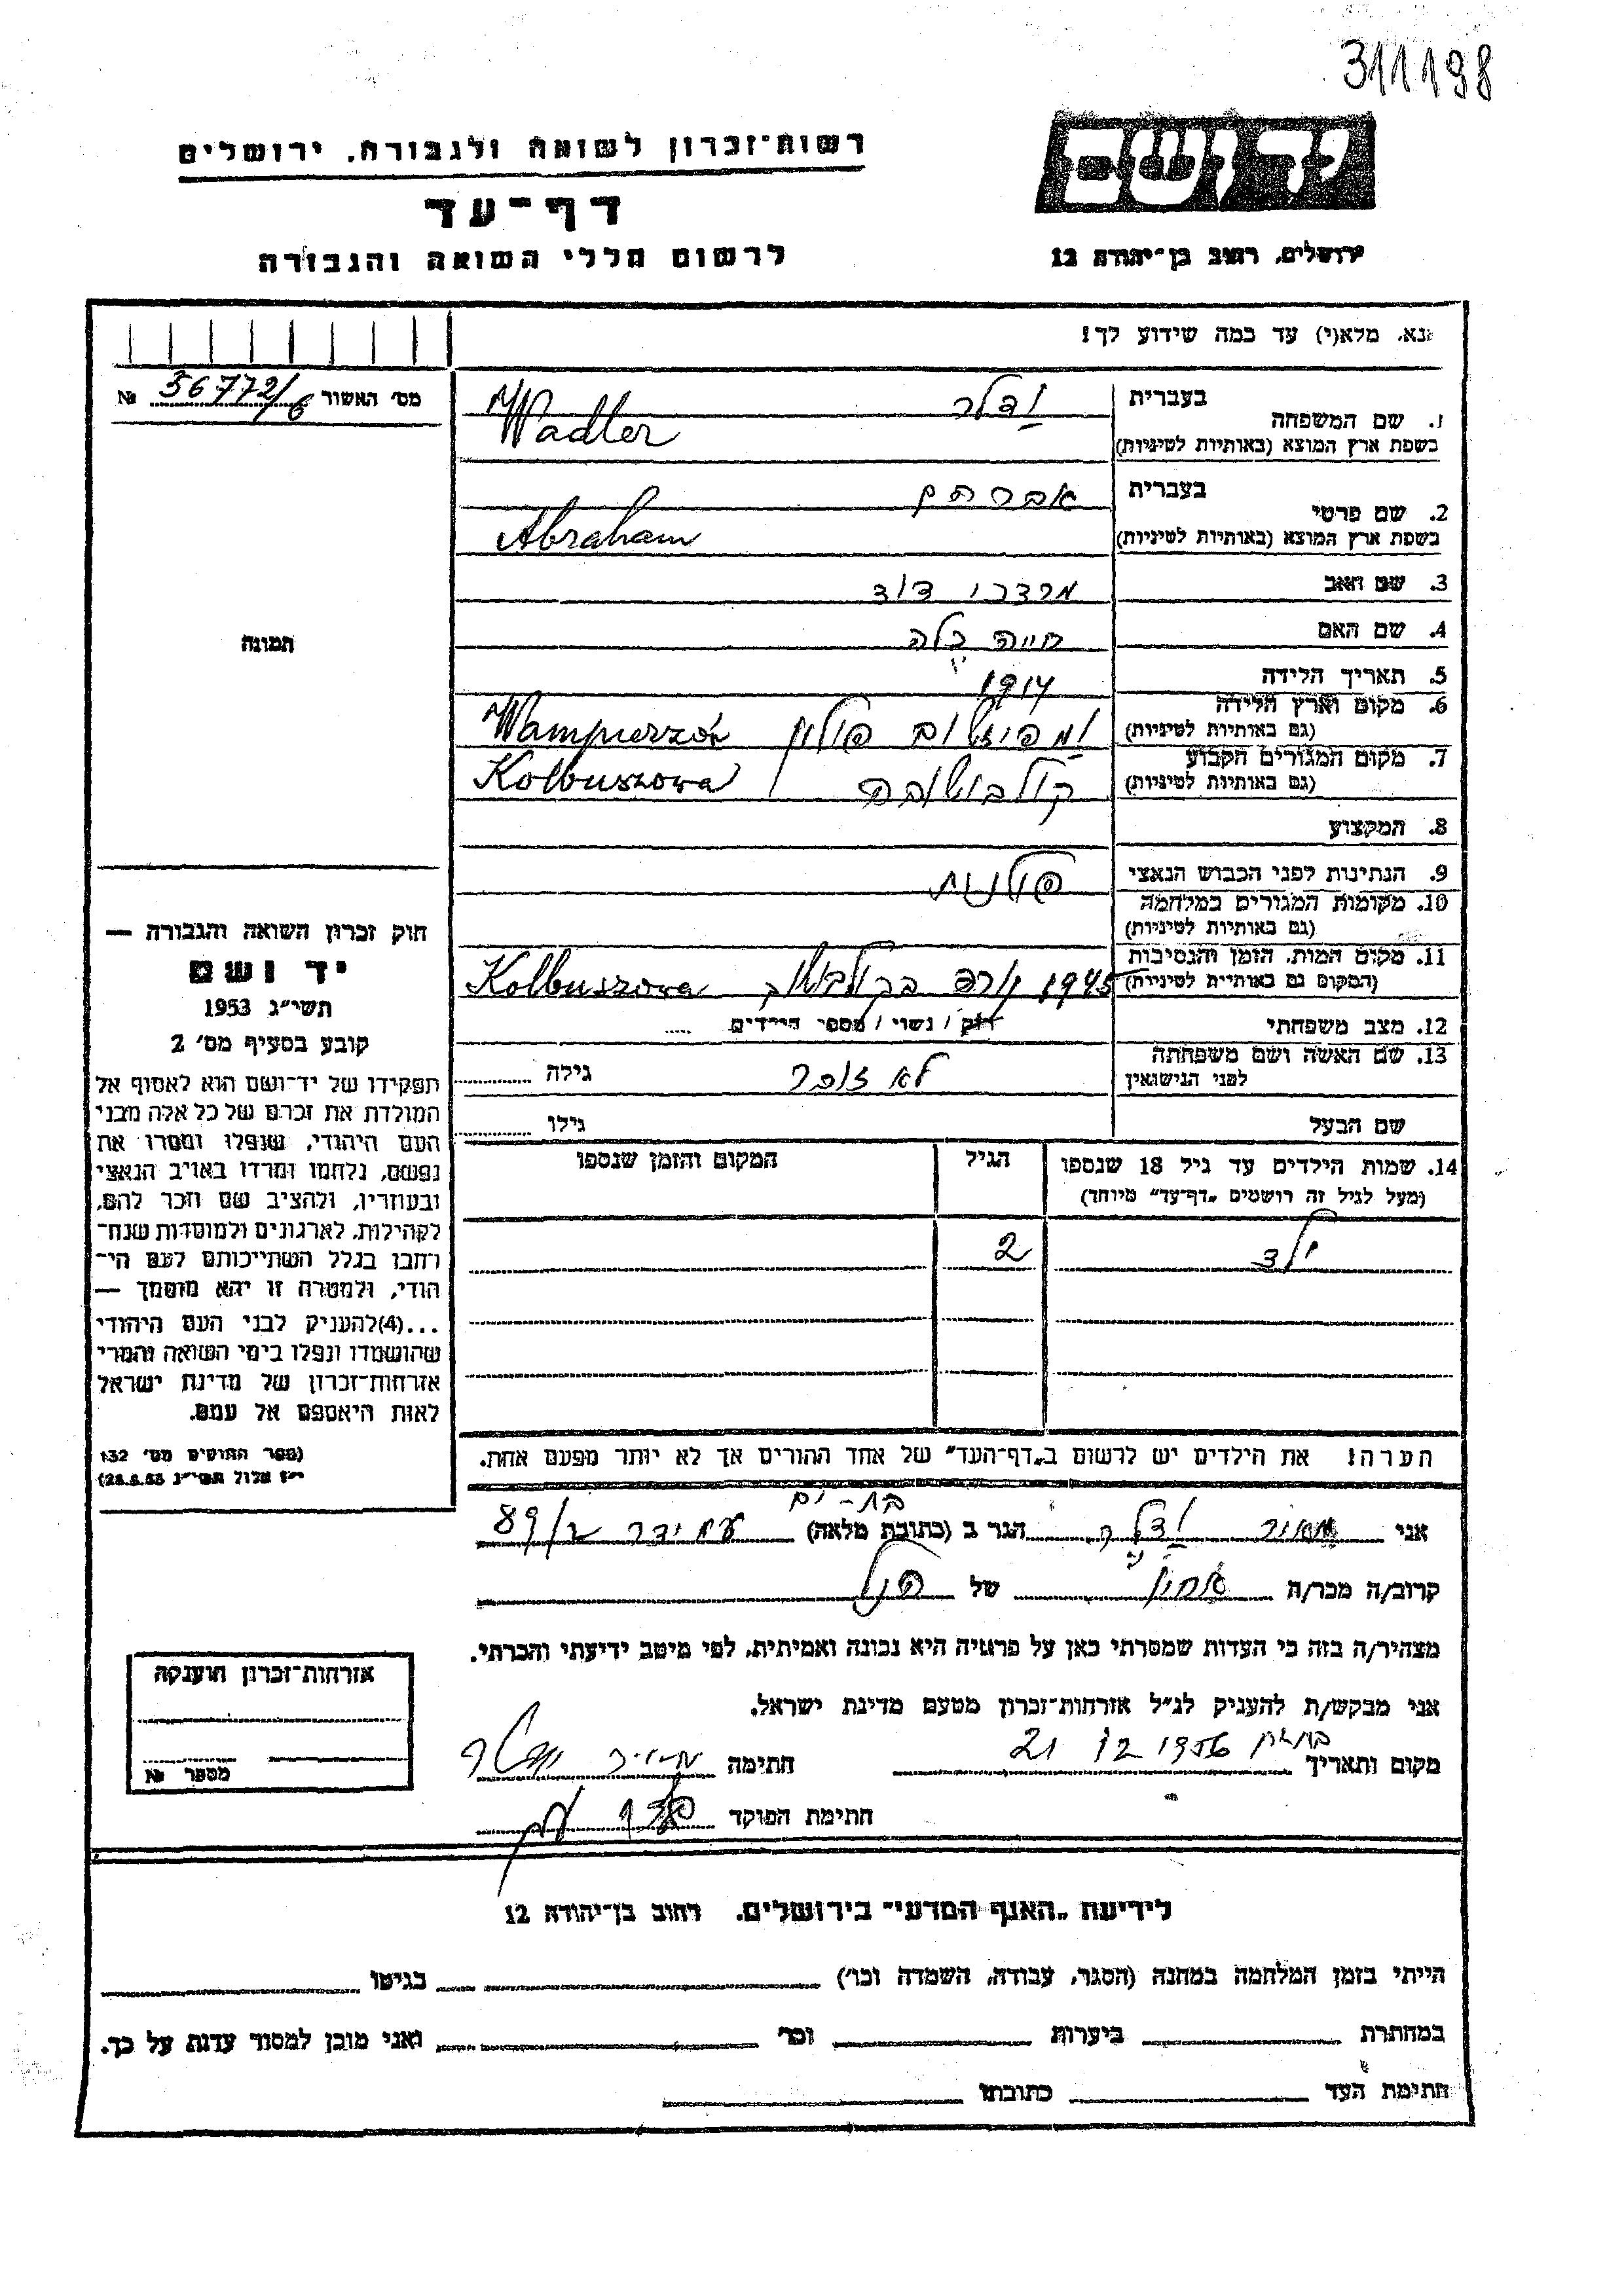 311198
רשות־זכרון לשואה ולגבורה, ירושלים
יד ושם
דף־עד
לרשום חללי השואה והגבורה
ירושלים, רחוב בן־יהודה 12
נא, מלא(י) עד כמה שידוע לך!
מס׳ האשור 56772/6 №
1. שם המשפחה
בעברית ודלר
בשפת ארץ המוצא (באותיות לטיניות) Wadler
2. שם פרטי
בעברית אברהם
בשפת ארץ המוצא (באותיות לטיניות) Abraham
3. שם האב מרדכי דוד
4. שם האם חייה בילה
תמונה
5. תאריך הלידה 1914
6. מקום וארץ הלידה
(גם באותיות לטיניות) פולין Wampierzów
7. מקום המגורים הקבוע
(גם באותיות לטיניות) קולבושובה Kolbuszowa
8. המקצוע
9. הנתינות לפני הכבוש הנאצי פולנית
10. מקומות המגורים במלחמה
(גם באותיות לטיניות)
11. מקום המות, הזמן והנסיבות
(המקום גם באותיות לטיניות) 1945 Kolbuszowa
12. מצב משפחתי רווק / נשוי / מספר הילדים ....
13. שם האשה ושם משפחתה
לפני הנישואין לא זוכר גילה
שם הבעל גילו
14. שמות הילדים עד גיל 18 שנספו הגיל המקום והזמן שנספו
(מעל לגיל זה רושמים „דף־עד״ מיוחד)
ילד 2
הערה! את הילדים יש לרשום ב„דף־העד״ של אחד ההורים אך לא יותר מפעם אחת.
חוק זכרון השואה והגבורה —
יד ושם
תשי״ג 1953
קובע בסעיף מס׳ 2
תפקידו של יד־ושם הוא לאסוף אל
המולדת את זכרם של כל אלה מבני
העם היהודי, שנפלו ומסרו את
נפשם, נלחמו ומרדו באויב הנאצי
ובעוזריו, ולהציב שם וזכר להם,
לקהילות, לארגונים ולמוסדות שנח־
רבו בגלל השתייכותם לעם הי־
הודי, ולמטרה זו יהא מוסמך —
...(4)להעניק לבני העם היהודי
שהושמדו ונפלו בימי השואה והמרי
אזרחות־זכרון של מדינת ישראל
לאות היאספם אל עמם.
(ספר החוקים מס׳ 132
י״ז אלול תשי״ג 28.8.53)
בת-ים
אני מאיר ודלר הגר ב (כתובת מלאה) עמידר ב/89
קרוב/ה מכר/ה אחיו של הנ״ל
מצהיר/ה בזה כי העדות שמסרתי כאן על פרטיה היא נכונה ואמיתית, לפי מיטב ידיעתי והכרתי.
אני מבקש/ת להעניק לנ״ל אזרחות־זכרון מטעם מדינת ישראל.
מקום ותאריך 21 12 1956 חתימה
חתימת הפוקד
אזרחות־זכרון הוענקה
מספר №
לידיעת „האגף המדעי״ בירושלים, רחוב בן־יהודה 12
הייתי בזמן המלחמה במחנה (הסגר, עבודה, השמדה וכו׳) בגיטו
במחתרת ביערות וכו׳ ואני מוכן למסור עדות על כך.
חתימת העד כתובתו